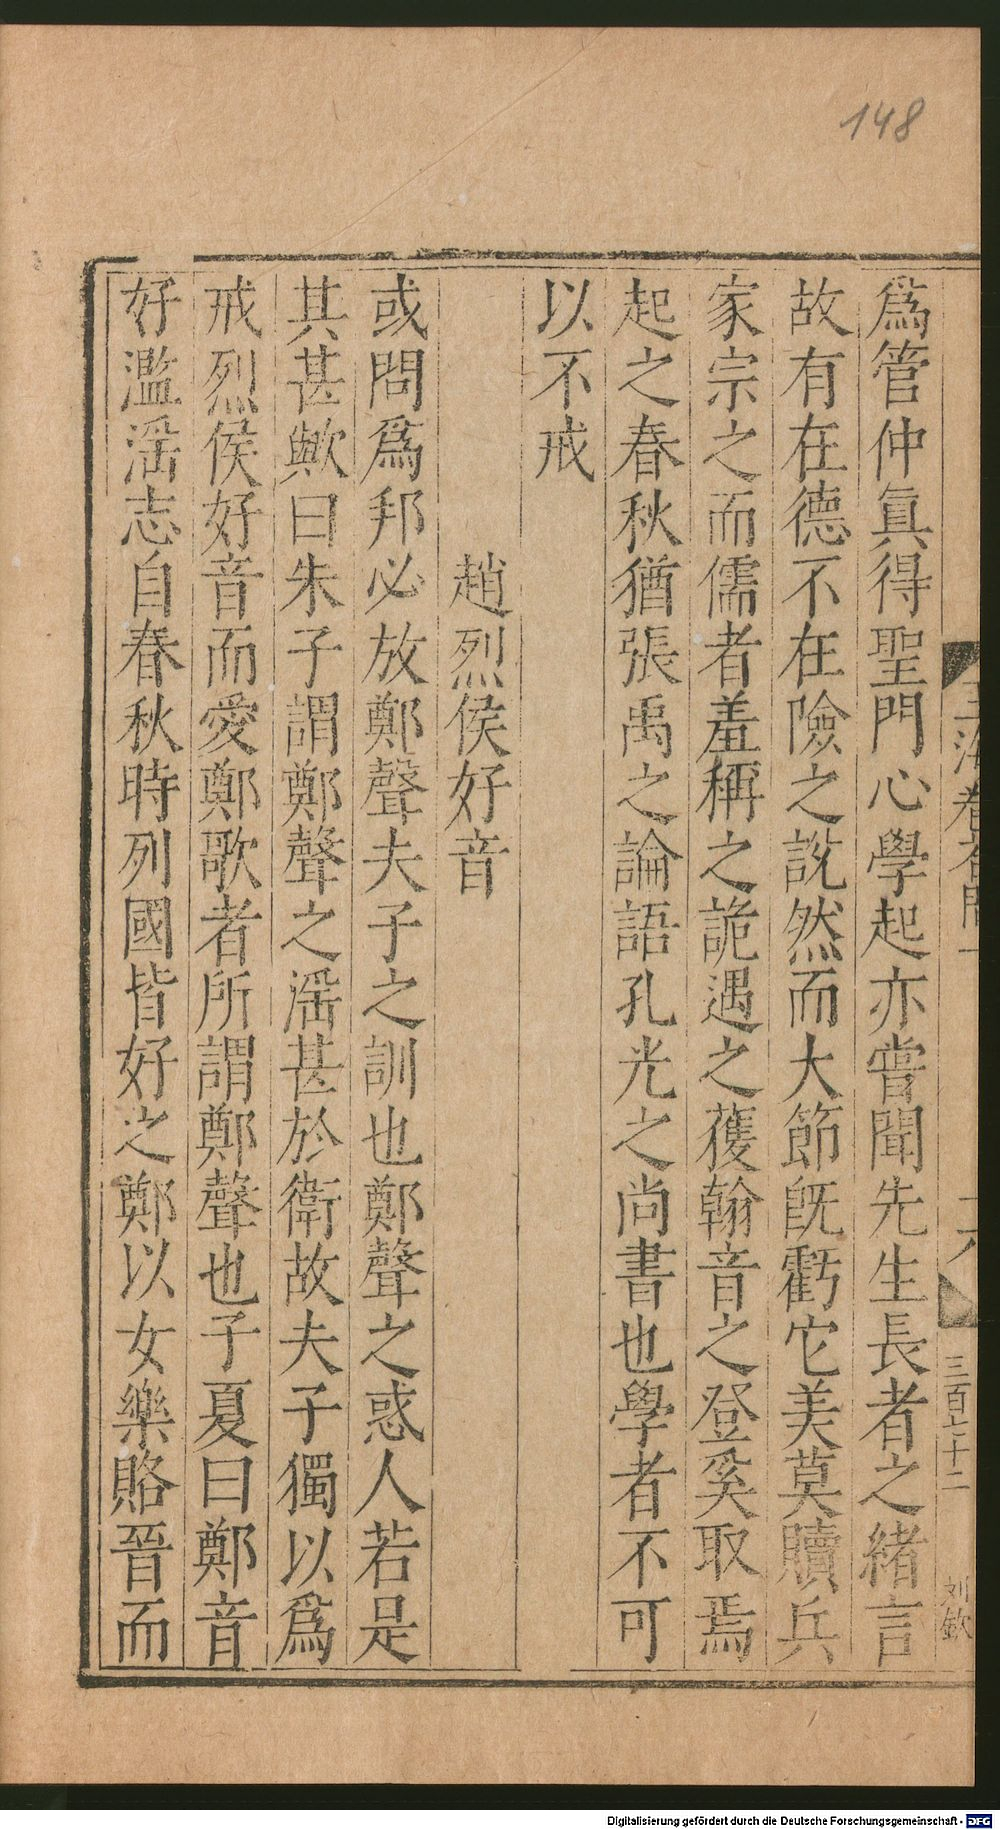 148
為管仲眞得聖門心學起亦嘗聞先生長者之緒言
故有在德不在險之說然而大節旣虧它美莫贖兵
家宗之而儒者羞稱之詭遇之獲翰音之登奚取焉
起之春秋猶張禹之論語孔光之尚書也學者不可
以不戒
趙烈侯好音
或問爲邦必放鄭聲夫子之訓也鄭聲之惑人若是
其甚歟曰朱子謂鄭聲之滛甚於衛故夫子獨以爲
戒烈侯好音而愛鄭歌者所謂鄭聲也子夏曰鄭音
好濫滛志自春秋時列國皆好之鄭以女樂賂晉而
三百七十二
刘欽
Digitalisierung gefördert durch die Deutsche Forschungsgemeinschaft - DFG